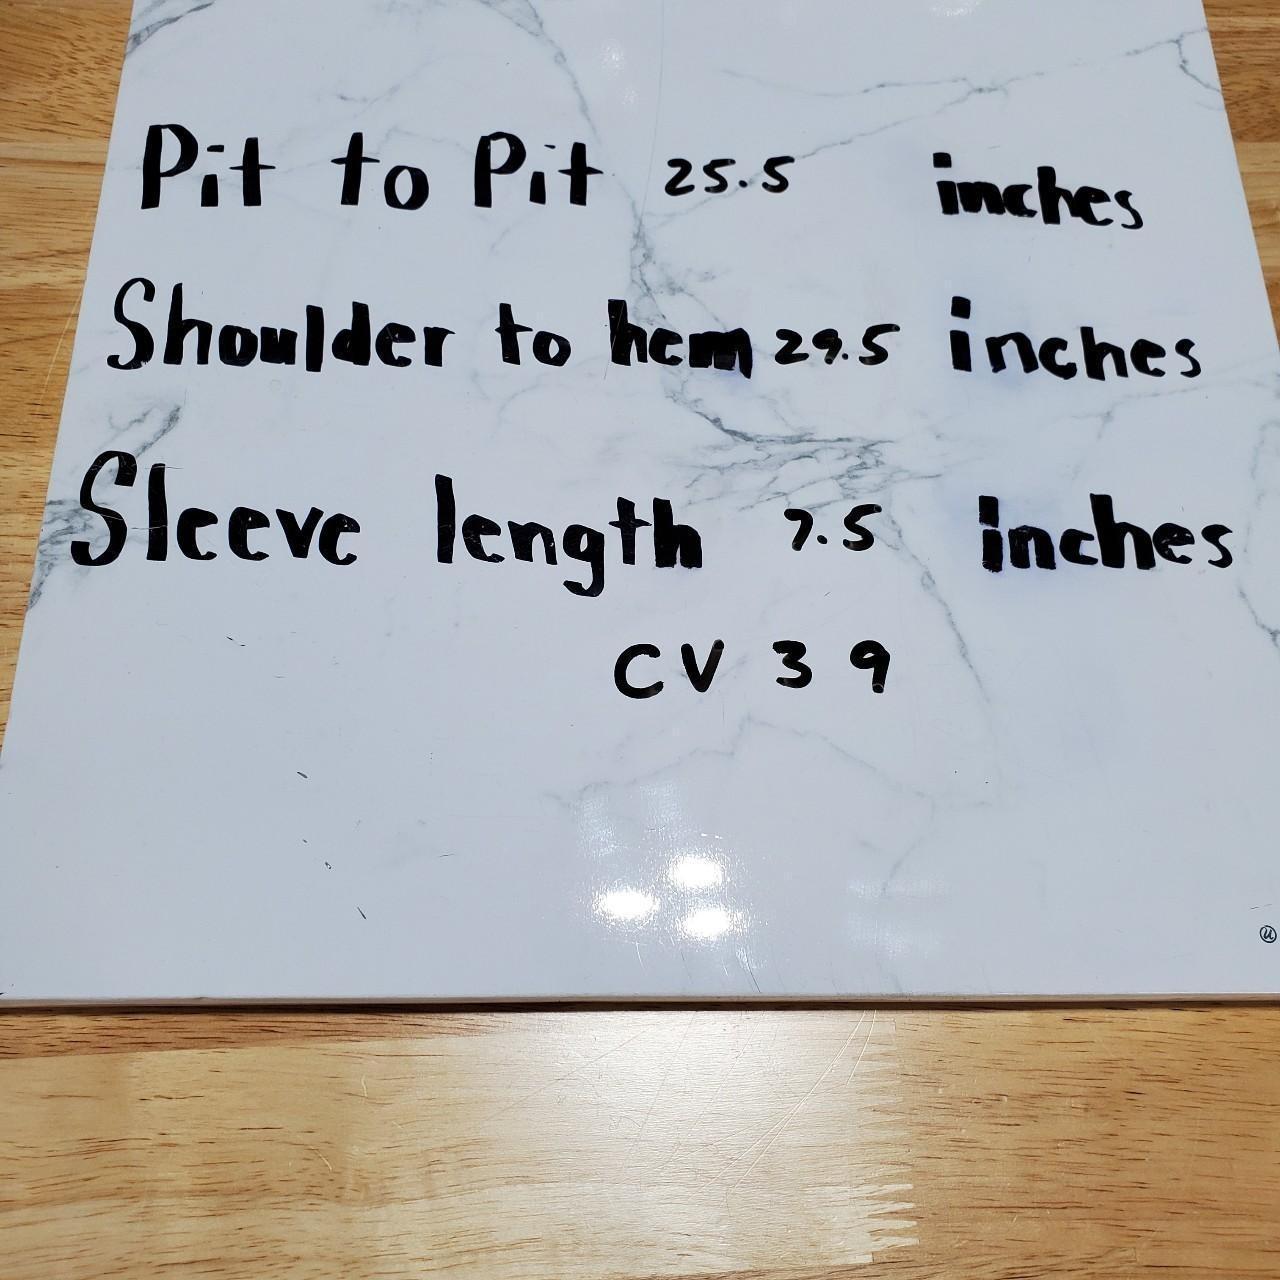 Pit to Pit 25.5 inches
Shoulder to hem 29.5 inches
Sleeve length 7.5 inches
CV 39